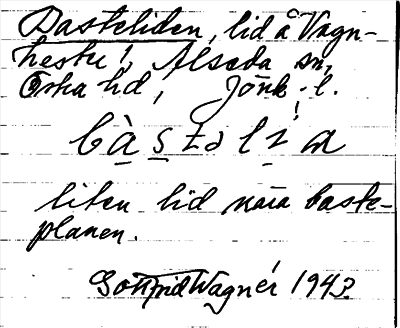 Basteliden, lid å Vagn-
hester, Alseda sn,
Östra hd, Jönk. l.
bàstəlị́a
liten lid nära baste-
planen.
Gottfrid Wagnér 1943.